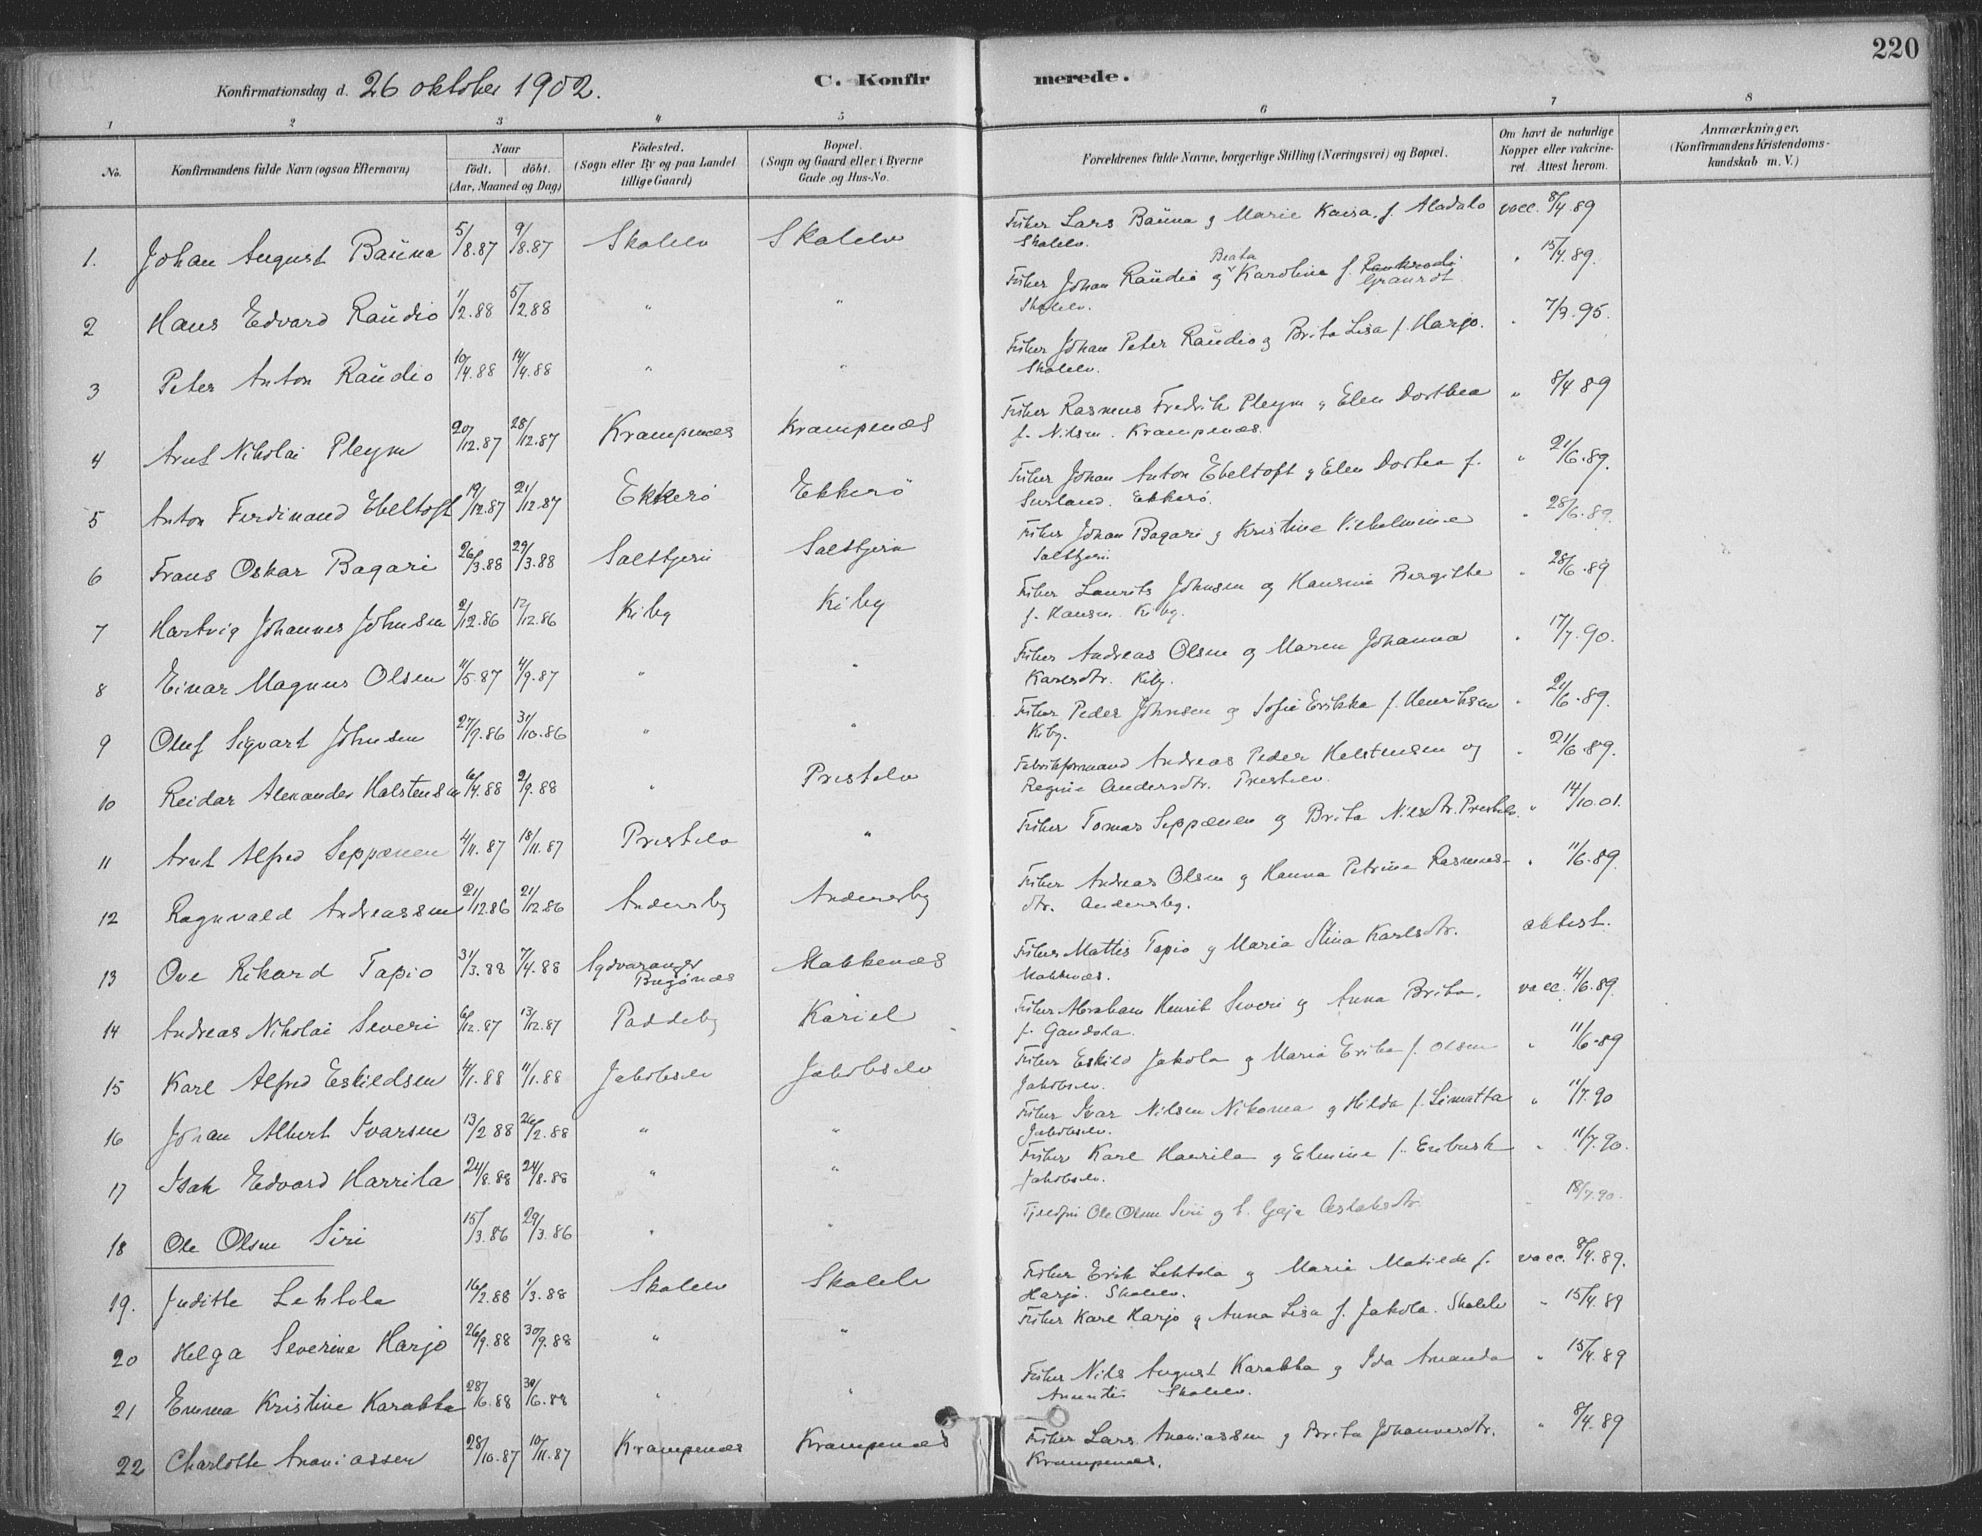 220
Konfirmationsdag d. 26 oktober 1902.
C. Konfir merede.
1 2 3 4 5 6 7 8
No. Konfirmandens fulde Navn (ogsaa Efternavn) Naar födt. döbt. (Aar, Maaned og Dag) Födested. (Sogn eller By og paa Landet tillige Gaard) Bopæl. (Sogn og Gaard eller i Byerne Gade og Hus-No. Forældrenes fulde Navne, borgerlige Stilling (Næringsvei) og Bopæl. Om havt de naturlige Kopper eller vakcineret. Attest herom. Anmærkninger. (Konfirmandens Kristendomskundskab m. V.)
1. Johan August Bauna 5/8.87 9/8.87 Skalelv Skalelv Fisker Lars Bauna g Marie Kaisa f. Aladalo Skalelv. vacc. 8/4 89
2 Hans Edvard Raudio 1/2.88 5/2 88 " " Fisker Johan Raudio g Beata Karoline f. Granrot Skalelv. " 15/4.89.
3 Peter Anton Raudio 10/4.88 14/4.88 " " Fisker Johan Peter Raudio g Brita Lisa f. Harjo. Skalelv. " 7/9.95.
4 Arnt Nikolai Pleym 20/12.87 28/12.87 Krampenæs Krampenæs Fisker Rasmus Fredrik Pleym g Elen Dorthea f. Nilsen. Krampenæs. " 8/4 89
5 Anton Ferdinand Ebeltoft 19/12.87 21/12.87 Ekkerö Ekkerö Fisker Johan Anton Ebeltoft g Elen Dortea f. Ekkerö. " 21/6.89.
6 Frans Oskar Bagari 26/3.88 29/3.88 Saltfjern Saltfjern Fisker Johan Bagari g Kristine Vilhelmine Saltfjern " 28/6.89.
7 Hartvig Johannes Johnsen 2/12.86 12/12.86 Kiby Kiby Fisker Laurits Johnsen og Hansine Bergitte f. Hansen. Kiby. " 28/6.89
8 Einar Magnus Olsen 11/5.87 4/9.87 " " Fisker Andreas Olsen og Maren Johanna Karlsdtr. Kiby. " 17/7.90.
9 Oluf Sigvart Johnsen 27/9.86 31/10.86 " " Fisker Peder Johnsen og Sofie Erikka f. Henriksen Kiby. " 21/6.89.
10 Reidar Alexander Halstensen 6/4.88 2/9.88 " Prestelv Fabrikformand Andreas Peder Halstensen og Regine Andersdtr. Prestelv. " 21/6 89.
11 Arnt Alfred Seppænen 4/11.87 18/11.87 Prestelv " Fisker Tomas Seppænen og Brita Nilsdtr. Prestelv. " 14/10.01.
12 Ragnvald Andreassen 21/12.86 21/12.86 Andersby Andersby Fisker Andreas Olsen g Hanna Petrine Rasmusdtr. Andersby. " 11/6.89
13 Ove Rikard Tapio 31/3.88 7/4.88 Sydvaranger Bugönæs Makkenæs Fisker Mattis Tapio g Maria Stina Karlsdtr. Makkenæs. attest.
14 Andreas Nikolai Severi 6/12.87 13/12.87 Paddeby Kariel Fisker Abraham Henrik Severi og Anna Brita f. Gandola. vacc. 4/6.89.
15 Karl Alfred Eskildsen 4/1.88 11/1.88 Jakobselv Jakobselv Fisker Eskild Jakola g Maria Erika f. Olsen Jakobselv. " 11/6.89
16 Johan Albert Ivarsen 13/2 88 26/2.88 " " Fisker Ivar Nilsen Nikoma g Hilda f. Limatta Jakobselv. " 11/7.90
17 Isak Edvard Harrila 24/8.88 24/8.88 " " Fisker Karl Harrila g Elmine f. Enbusk Jakobselv. " 11/7.90.
18 Ole Olsen Siri 15/3.86 29/3.86 " " Ole Olsen Siri og h. Gaja Aslaksdtr. 18/7.90.
19. Juditte Lehtola 16/2.88 1/3.88 Skalelv Skalelv Fisker Erik Lehtola g Maria Matilde f. Harjo. Skalelv. vacc. 8/4.89.
20 Helga Severine Harjo 26/9.88 30/9.88 " " Fisker Karl Harjo g Anna Lisa f. Jakola. Skalelv " 15/4.89
21 Emma Kristine Karakka 28/6.88 30/6.88 " " Fisker Nils August Karakka g Ida Amanda Skalelv. " 15/4.89
22 Charlotte Ananiassen 28/10.87 10/11.87 Krampenæs Krampenæs Fisker Lars Ananiassen g Brita Johannesdtr. Krampenæs. " 8/4.89